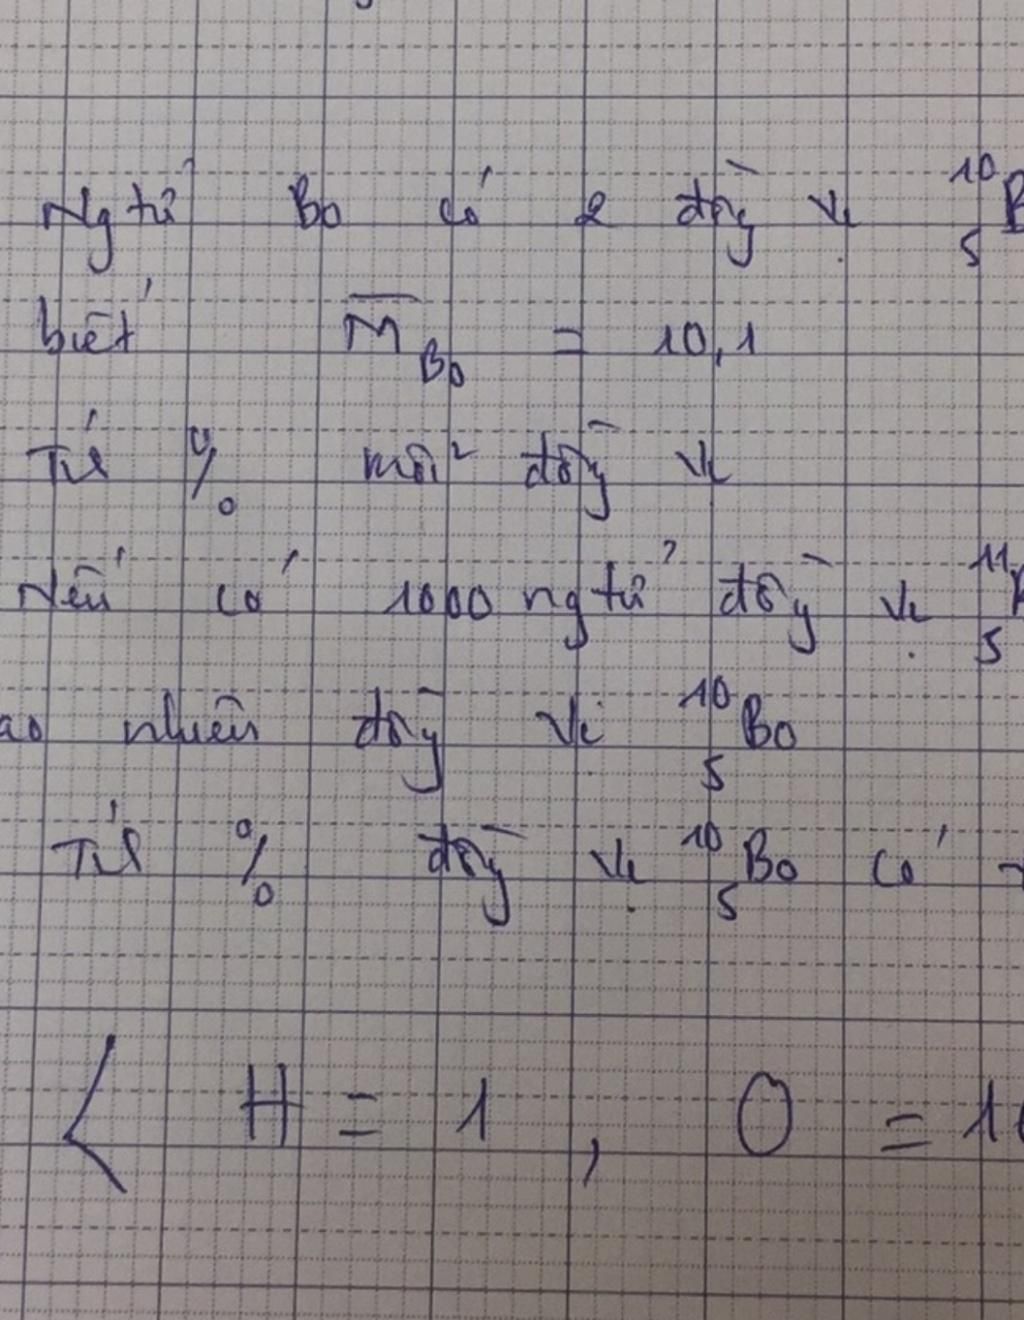 Ng tử Bo có 2 đồg vị ¹⁰₅B
biết M̅_Bo = 10,1
Tíh % mỗi đồg vị
Nếu có 1000 ng tử đồg vị ¹¹₅B
ao nhiêu đồg vị ¹⁰₅Bo
Tíh % đồg vị ¹⁰₅Bo có
< H = 1 , O = 1